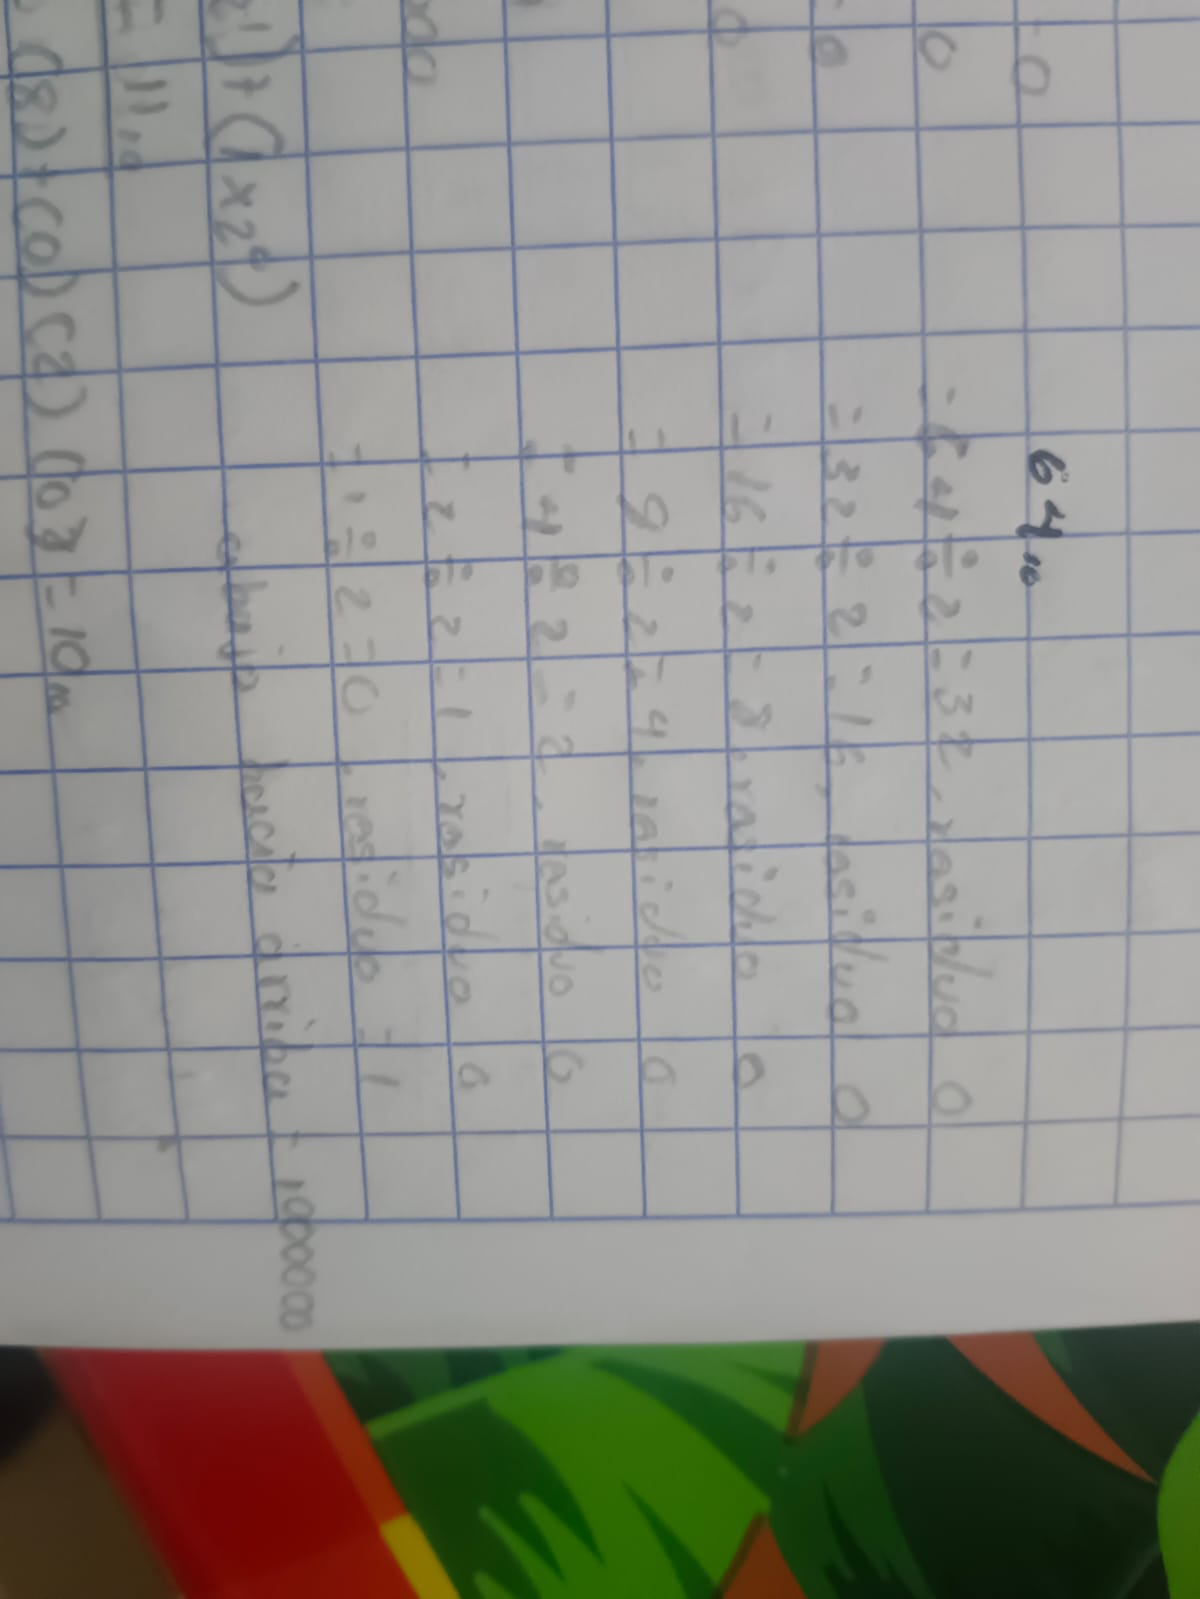 64₁₀
= 64 ÷ 2 = 32, residuo 0
= 32 ÷ 2 = 16, residuo 0
= 16 ÷ 2 = 8, residuo 0
= 8 ÷ 2 = 4, residuo 0
= 4 ÷ 2 = 2, residuo 0
= 2 ÷ 2 = 1, residuo 0
= 1 ÷ 2 = 0, residuo = 1
abajo hacia arriba = 1000000
0
0
0
0
000
2¹) + (1x2⁰)
= 11₁₀
(8) + (0) (2) (0) = 10₁₀